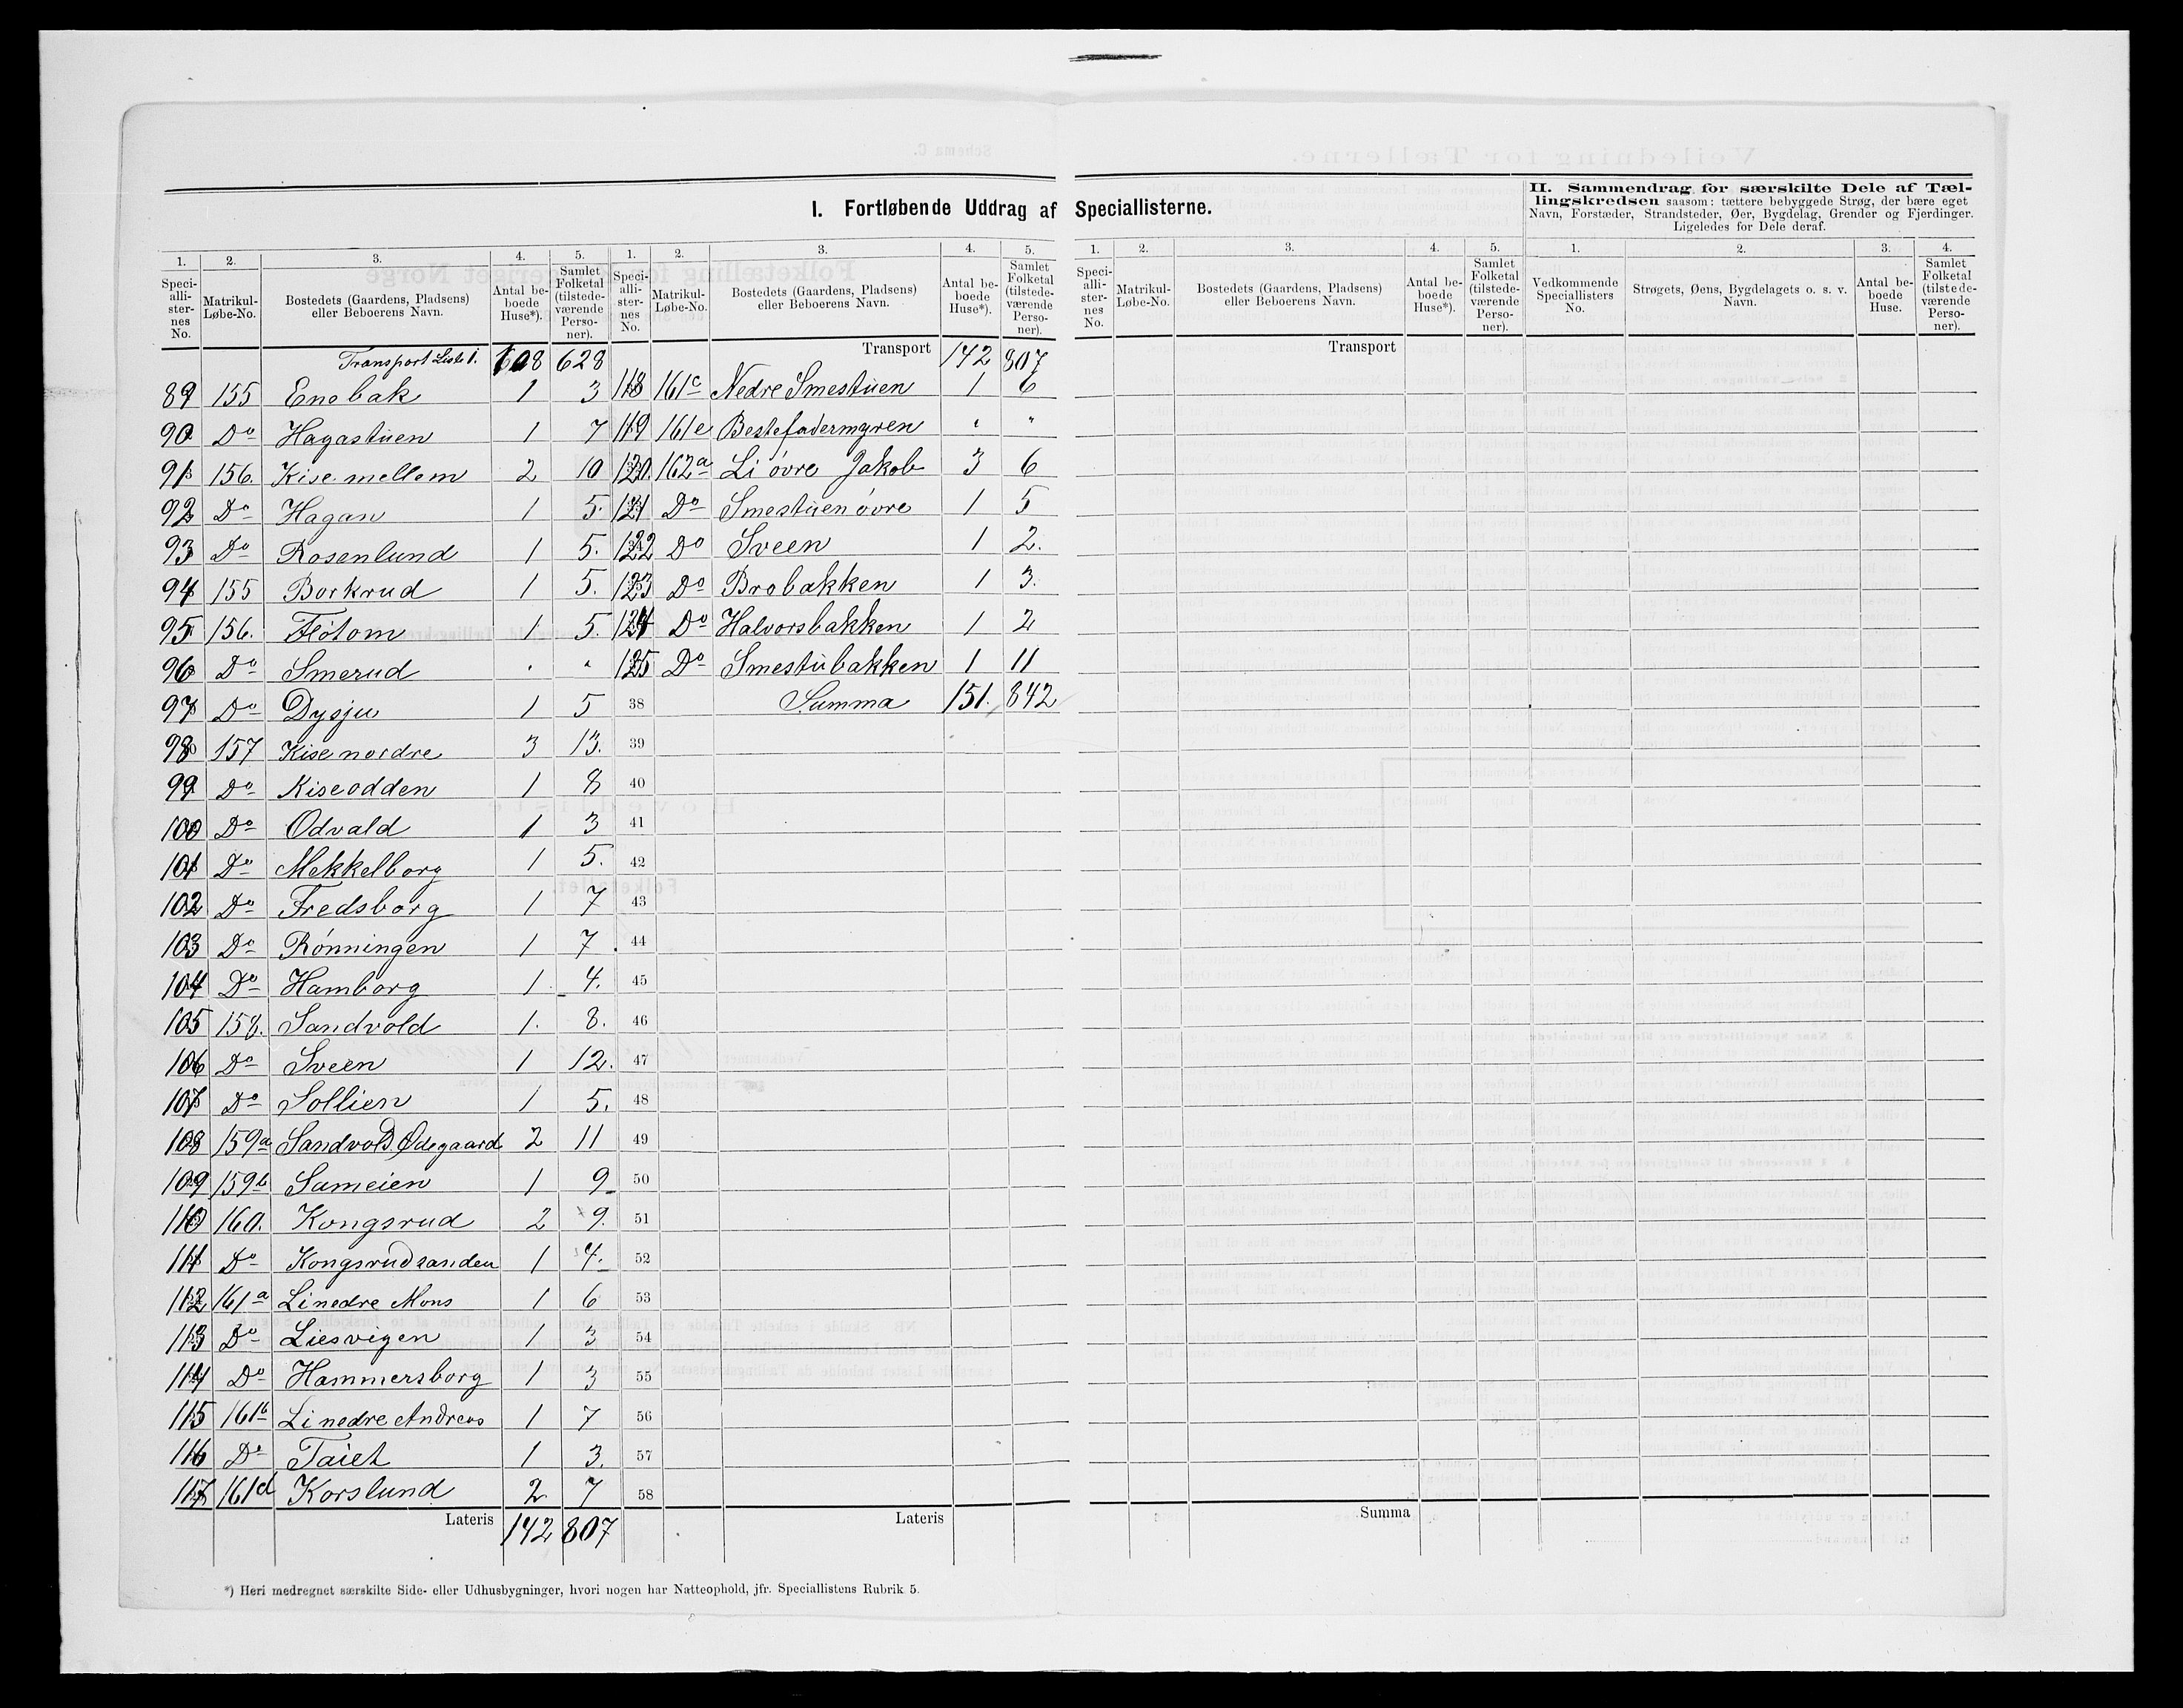 I. Fortløbende Uddrag af Speciallisterne.
II. Sammendrag for særskilte Dele af Tæl-
lingskredsen saasom: tættere bebyggede Strøg, der bære eget
Navn, Forstæder, Strandsteder, Øer, Bygdelag, Grender og Fjerdinger.
Ligeledes for Dele deraf.
1. 2. 3. 4. 5.
Speci-alli-ster-nes No. Matrikul-Løbe-No. Bostedets (Gaardens, Pladsens) eller Beboerens Navn. Antal be-boede Huse*). Samlet Folketal (tilstede-værende Perso-ner).
Transport Liste 1. 108 628
89 155 Enebak 1 3
90 Do Hagastuen 1 7
91 156. Kise mellem 2 10
92 Do Hagan 1 5.
93 Do Rosenlund 1 5.
94 155 Borkrud 1 5.
95 156. Flótom 1 5.
96 Do Smerud " "
97 Do Dysju 1 5
98 157 Kise nordre 3 13.
99 Do Kiseodden 1 8
100 Do Odvald 1 3
101 Do Mekkelborg 1 5.
102 Do Fredsborg 1 7
103 Do Rónningen 1 7
104 Do Hamborg 1 4.
105 158. Sandvold 1. 8.
106 Do Sveen 1 12.
107 Do Sollien 1 5.
108 159a Sandvold Ødegaard 2 11
109 159b Sameien 1 9
110 160. Kongsrud 2 9.
111 Do Kongsrudsanden 1 4.
112 161a Li nedre Mons 1 6
113 Do Liesvigen 1 3
114 Do Hammersborg 1 3
115 161b Li nedre Andreas 1 7
116 Do Taiet 1 3.
117 161d Korslund 2 7
Lateris 142 807
1. 2. 3. 4. 5.
Speci-alli-ster-nes No. Matrikul-Løbe-No. Bostedets (Gaardens, Pladsens) eller Beboerens Navn. Antal be-boede Huse*). Samlet Folketal (tilstede-værende Perso-ner).
Transport 142 807
118 161c Nedre Smestuen 1 6
119 161e Bestefadermyren " "
120. 162a Li óvre Jakob 3 6
121 Do Smestuen óvre 1 5
122 Do Sveen 1 2.
123 Do Brobakken 1 3.
124 Do Halvorsbakken 1 2
125 Do Smestubakken 1 11
38 Summa 151. 842
39
40
41
42
43
44
45
46
47
48
49
50
51
52
53
54
55
56
57
58
Lateris
1. 2. 3. 4. 5.
Speci-alli-ster-nes No. Matrikul-Løbe-No. Bostedets (Gaardens, Pladsens) eller Beboerens Navn. Antal be-boede Huse*). Samlet Folketal (tilstede-værende Perso-ner).
Transport
Summa
1. 2. 3. 4.
Vedkommende Speciallisters No. Strøgets, Øens, Bygdelagets o. s. v. Navn. Antal be-boede Huse. Samlet Folketal (tilstede-værende Perso-ner).
*) Heri medregnet særskilte Side- eller Udhusbygninger, hvori nogen har Natteophold, jfr. Speciallistens Rubrik 5.